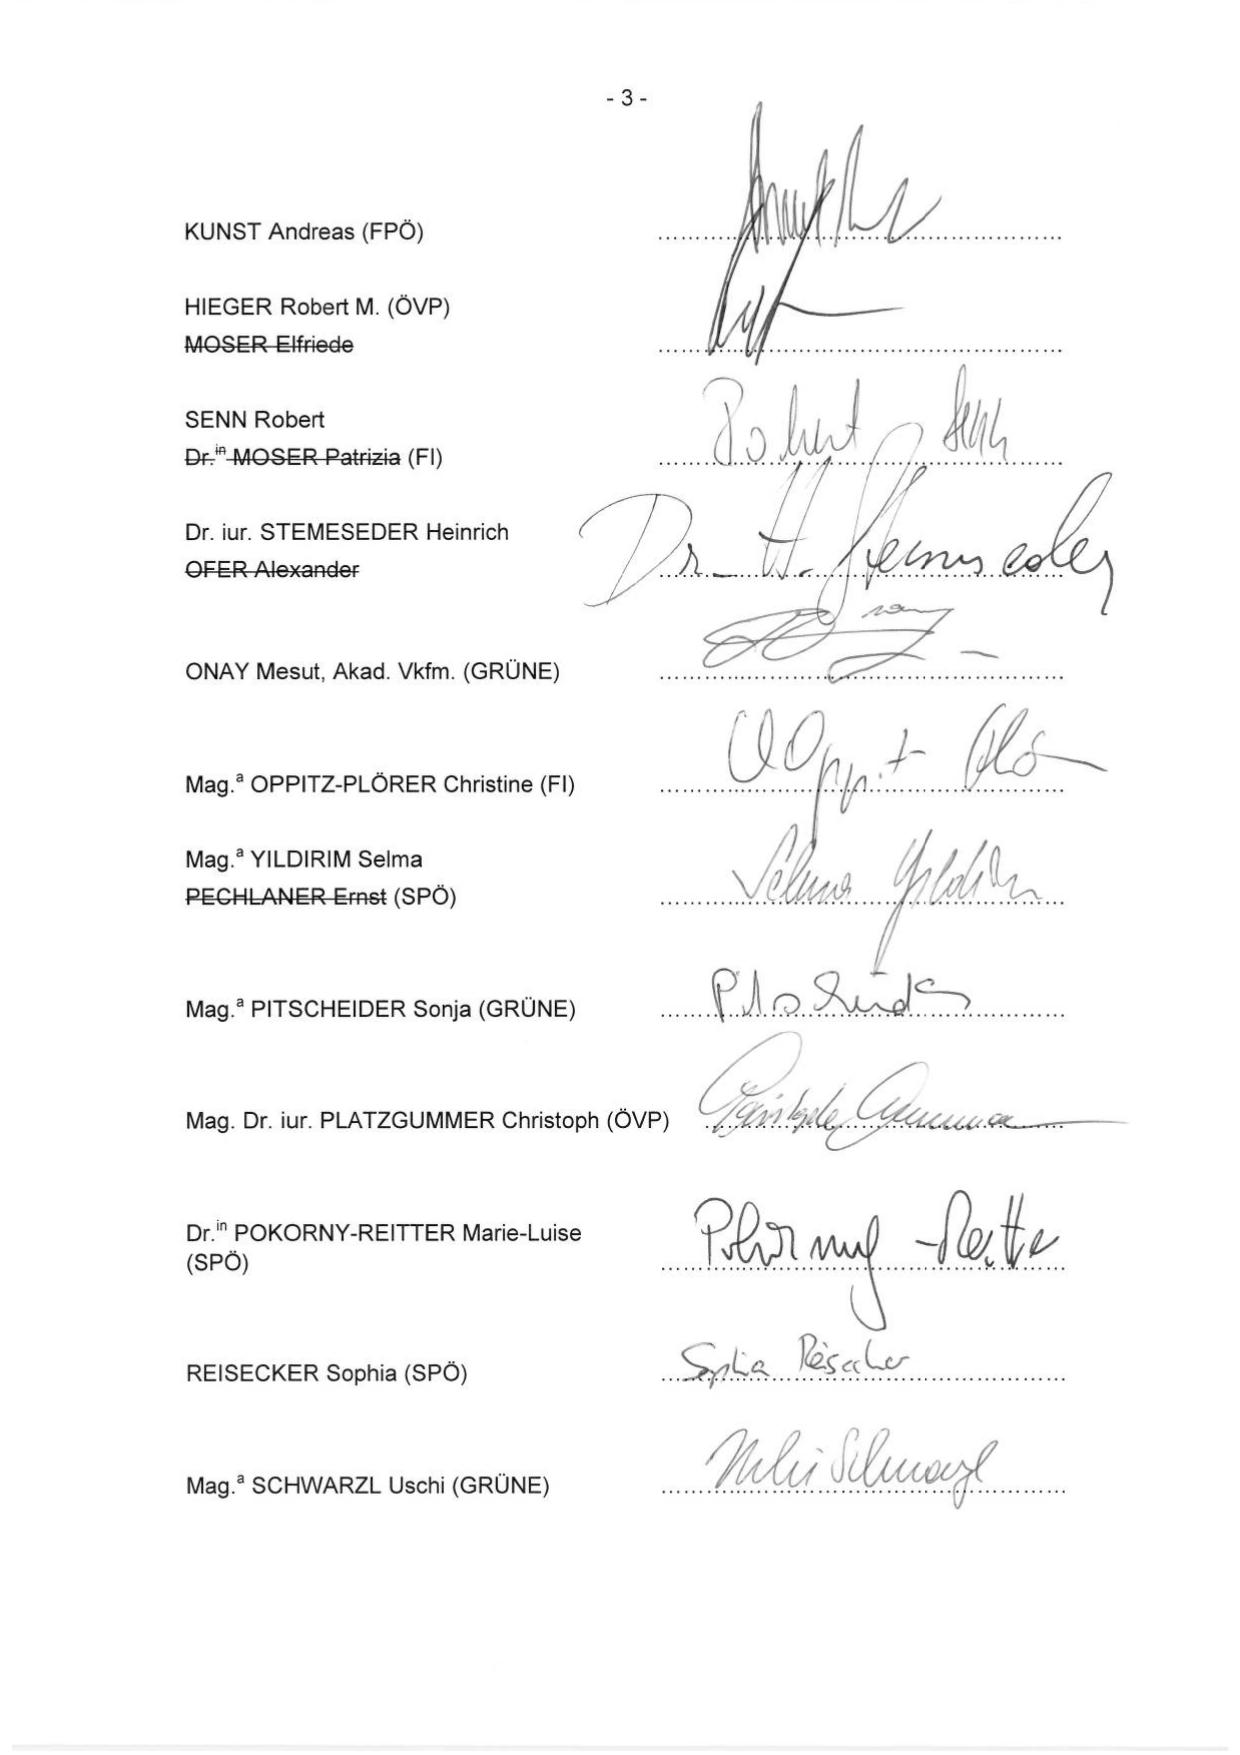 - 3 -
KUNST Andreas (FPÖ) ..............................
HIEGER Robert M. (ÖVP)
MOSER Elfriede ..............................
SENN Robert
Dr.in MOSER Patrizia (FI) Robert Senn
Dr. iur. STEMESEDER Heinrich
OFER Alexander Dr. H. Stemeseder
ONAY Mesut, Akad. Vkfm. (GRÜNE) ..............................
Mag.a OPPITZ-PLÖRER Christine (FI) ..............................
Mag.a YILDIRIM Selma
PECHLANER Ernst (SPÖ) Selma Yildirim
Mag.a PITSCHEIDER Sonja (GRÜNE) ..............................
Mag. Dr. iur. PLATZGUMMER Christoph (ÖVP) ..............................
Dr.in POKORNY-REITTER Marie-Luise
(SPÖ) Pokorny-Reitter
REISECKER Sophia (SPÖ) Sophia Reisecker
Mag.a SCHWARZL Uschi (GRÜNE) Uschi Schwarzl